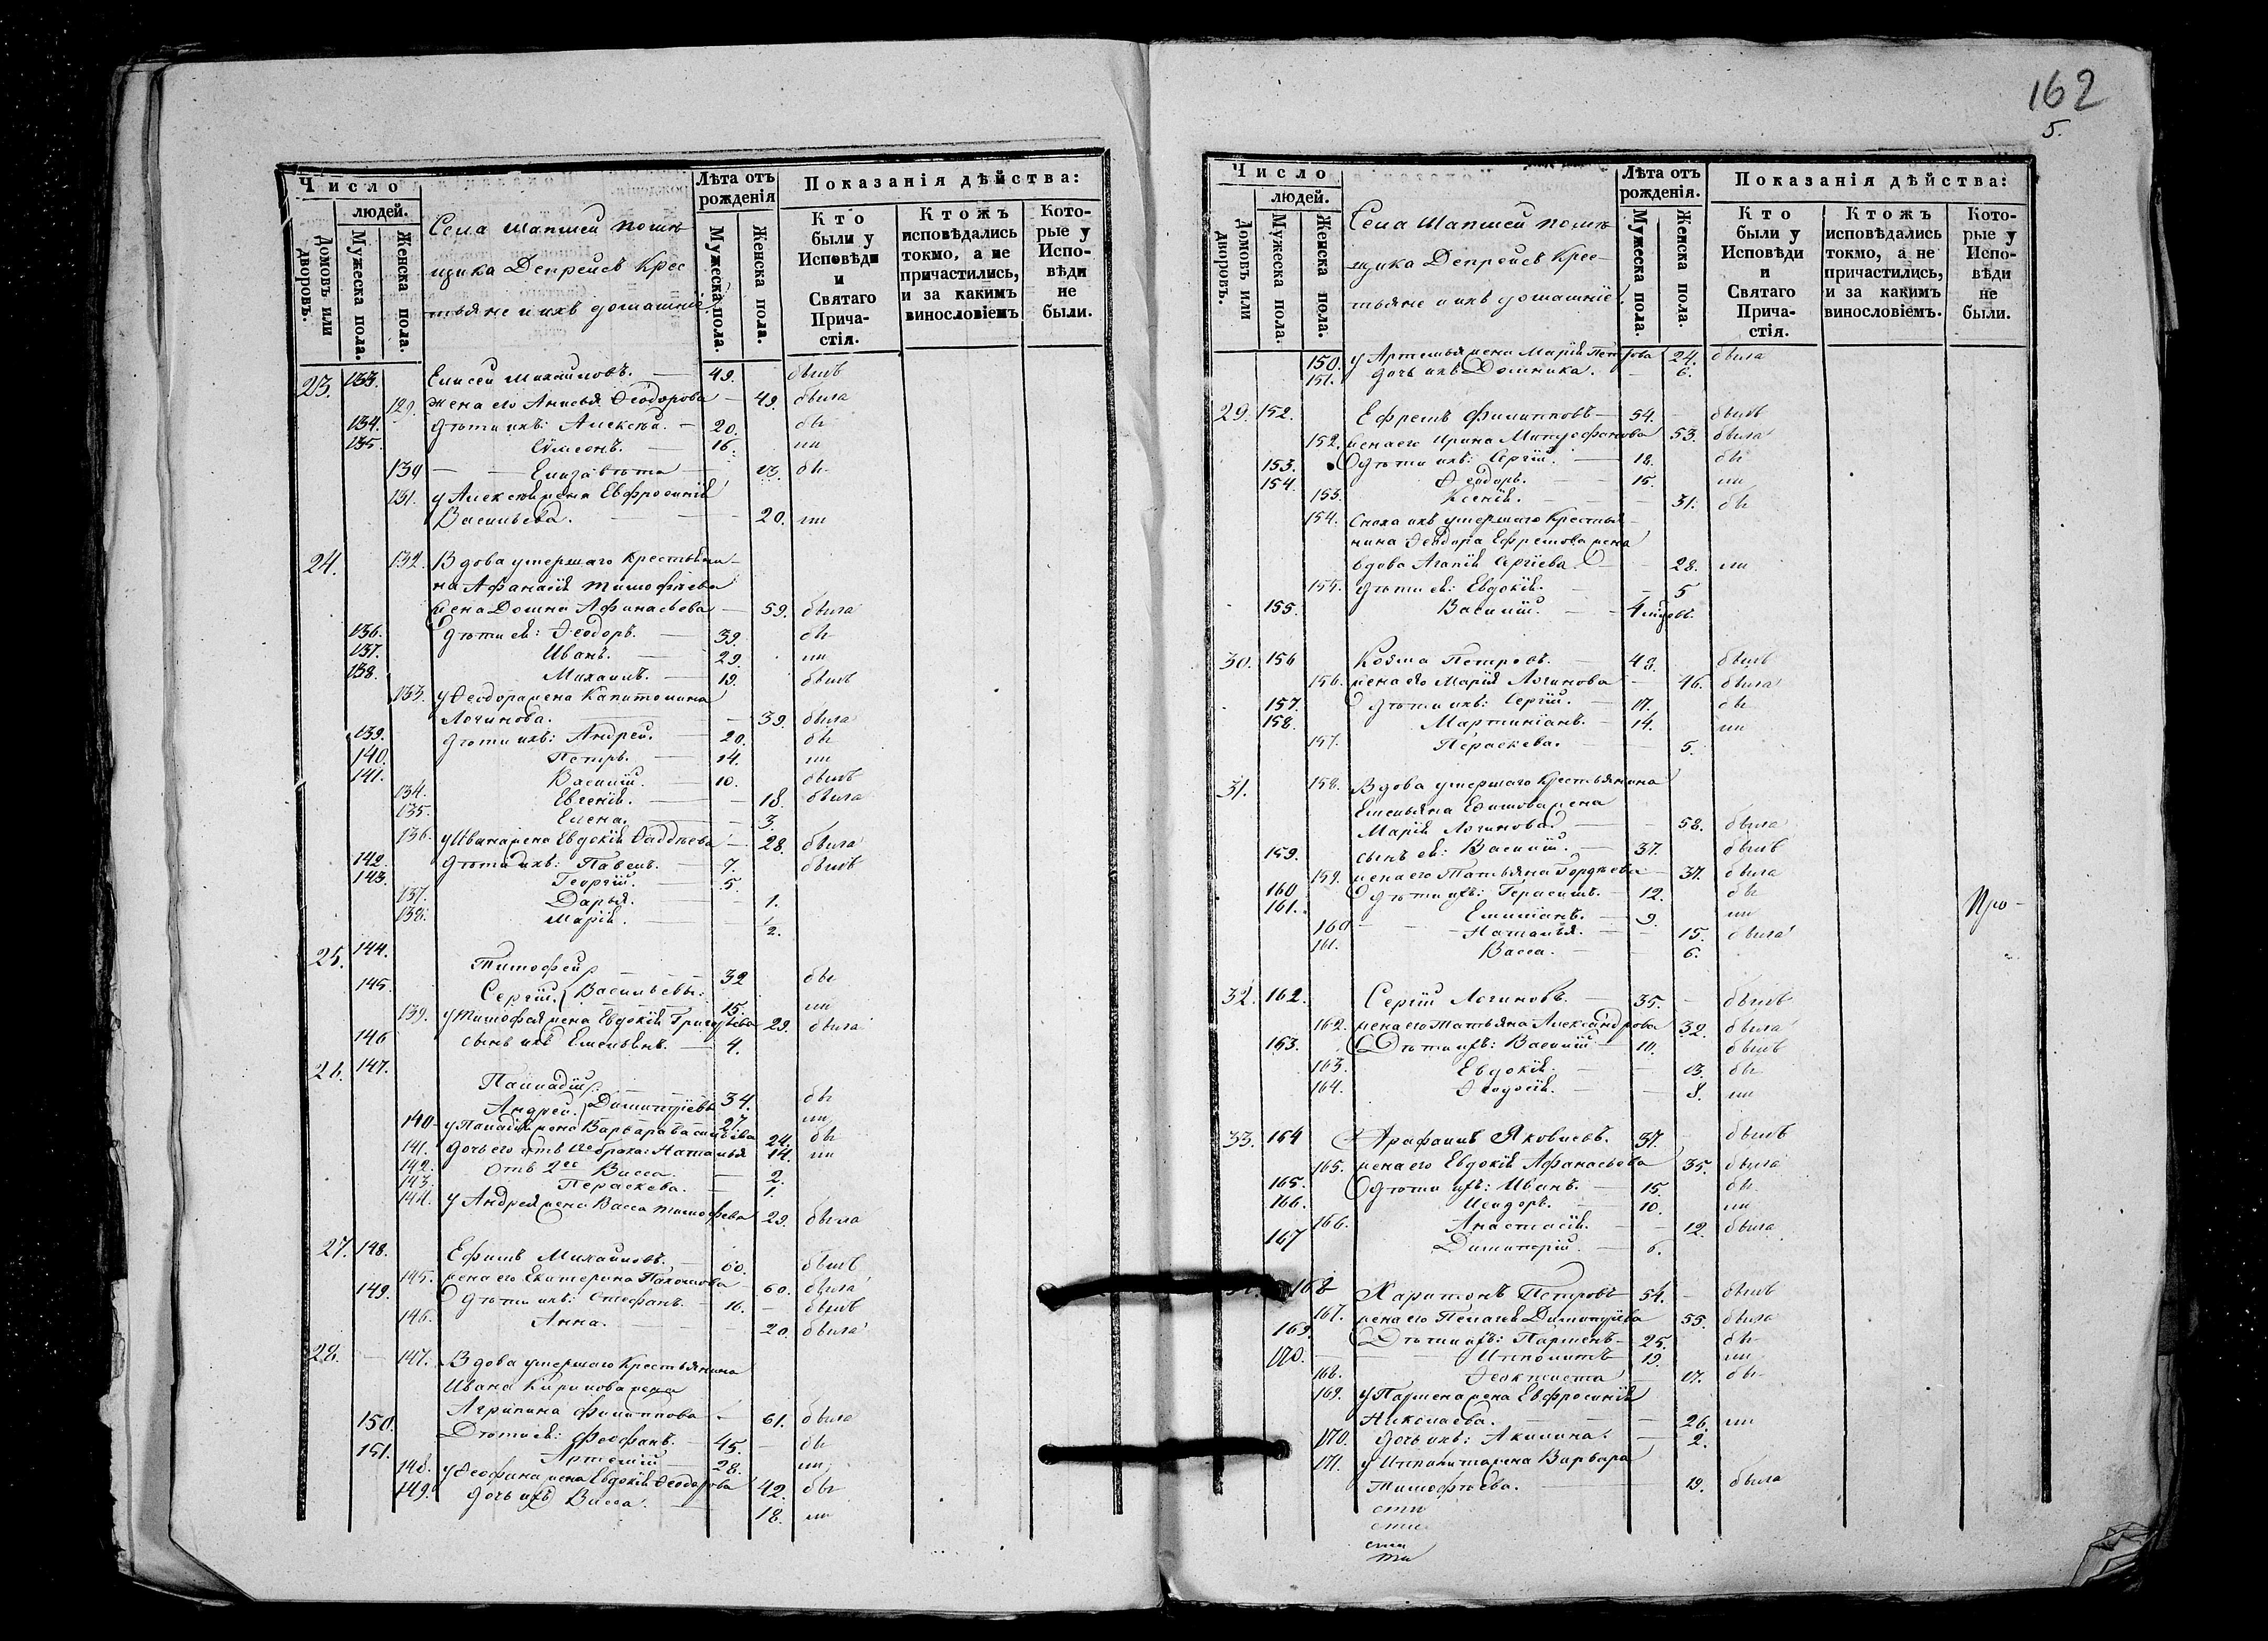 Число
людей.
Домовъ или дворовъ.
Мужеска пола.
Женска пола.
Села Шапшей помѣ
щика Депрейсъ Крес
тьяне и ихъ домашніе.
Лѣта отъ рожденія
Мужеска пола.
Женска пола.
Показанія дѣйства:
Кто были у Исповѣди и Святаго Прича-стія.
Ктожъ исповѣдались токмо, а не причастились, и за какимъ винословіемъ
Кото-рые у Испо-вѣди не были.
23. 133. Елисей Михайловъ. 49. былъ
129. жена его Анисья Ѳеодорова 49. была
134. дѣти ихъ: Алексѣй. 20. бы
135. Сѵмеонъ. 16. ли
130 Елизавета 13. бы
131. у Алексѣя жена Евфросинія
Васильева. 20. ли
24. 132. Вдова умершаго Крестьяни-
на Афанасія Тимофѣева
жена Домна Афанасьева 59. была
136. дѣти ея: Ѳеодоръ. 39. бы
137. Иванъ. 29. ли
138. Михаилъ. 19. былъ
133. у Ѳеодора жена Капитолина
Логинова. 39. была
139. дѣти ихъ: Андрей. 20. бы
140. Петръ. 14. ли
141. Василій. 10. былъ
134. Евгенія. 18. была
135. Елена. 3.
136. у Ивана жена Евдокія Ѳаддѣева 28. была
142. дѣти ихъ: Павелъ. 7. былъ
143. Георгій. 5.
137. Дарья. 1.
138. Марія. 1/2.
25. 144. Тимофей 32 бы
145. Сергій. Васильевы. 15. ли
139. у Тимофея жена Евдокія Григорьева 29. была
146 сынъ ихъ Емельянъ. 4.
26. 147. Палладій 34. бы
Андрей. Димитріевы 27. ли
140 у Паладія жена Варвара Васильева 24. бы
141. дочь его отъ 1го брака: Наталья 14. ли
142. Отъ 2го Васса. 2.
143. Параскева. 1.
144. у Андрея жена Васса Тимофѣева 29. была
27. 148. Ефимъ Михайловъ. 60. былъ
145. жена его Екатерина Пахомова 60. была
149. дѣти ихъ: Стефанъ. 16. былъ
146. Анна. 20. была
28. 147. Вдова умершаго Крестьянина
Ивана Кирилова жена
Агрипина Филиппова 61. была
150. Дѣти ея: Феофанъ. 45. бы
151. Артемій 28. ли
148. у Ѳеофана жена Евдокія Ѳеодорова 42. бы
149. дочь ихъ Васса. 18. ли
162
5.
Число
людей.
Домовъ или дворовъ.
Мужеска пола.
Женска пола.
Села Шапшей помѣ
щика Депрейсъ Крес-
тьяне и ихъ домашніе.
Лѣта отъ рожденія.
Мужеска пола.
Женска пола.
Показанія дѣйства:
Кто были у Исповѣди и Святаго Прича-стія.
Ктожъ исповѣдались токмо, а не причастились, и за какимъ винословіемъ.
Кото-рые у Испо-вѣди не были.
150. у Артемья жена Марія Петрова 24. была
151. дочь ихъ Домника. 6.
29. 152. Ефремъ Филипповъ 54. былъ
152. жена его Ирина Митрофанова 53. была
153. дѣти ихъ: Сергій. 18. бы
154. Ѳеодоръ. 15. ли
153. Ксенія. 31. бы
154. Сноха ихъ умершаго Крестья
нина Ѳеодора Ефремова жена
вдова Агапія Сергіева. 28. ли
155. дѣти ея: Евдокія. 5
155. Василій. 4
30. 156 Козма Петровъ. 49. былъ
156. жена его Марія Логинова 46. была
157. дѣти ихъ: Сергій. 17. бы
158. Мартиніанъ. 14. ли
157. Параскева. 5.
31. 158. Вдова умершаго Крестьянина
Емельяна Ефимова жена
Марія Логинова. 58. была
159. сынъ ея: Василій. 37. былъ
159. жена его Татьяна Гордѣева 37. была
160 дѣти ихъ: Герасимъ. 12. бы
161. Емиліанъ. 9. ли
Про-
160 Наталья. 15. была
161. Васса. 6.
32. 162. Сергій Логиновъ. 35. былъ
162. жена его Татьяна Александрова 32. была
163. Дѣти ихъ: Василій 10. былъ
163. Евдокія. 13. бы
164. Ѳеодосія. 8. ли
33. 164 Арафаилъ Яковлевъ. 37. былъ
165. жена его Евдокія Афанасьева 35. была
165. дѣти ихъ: Иванъ. 15. бы
166. Исидоръ. 10. ли
166. Анастасія. 12. была
167 Димитрій. 6.
168 Харитонъ Петровъ 54. былъ
167. жена его Пелагея Димитріева 55. была
169. Дѣти ихъ: Парменъ 25. бы
170. Ипполитъ 19. ли
168. Ѳеоктиста 17. бы
169. у Пармена жена Евфросинія
Николаева. 26. ли
170. дочь ихъ: Акилина. 2.
171. у Ипполита жена Варвара
Тимофѣева. 19. была
сти
сти
сти
ти